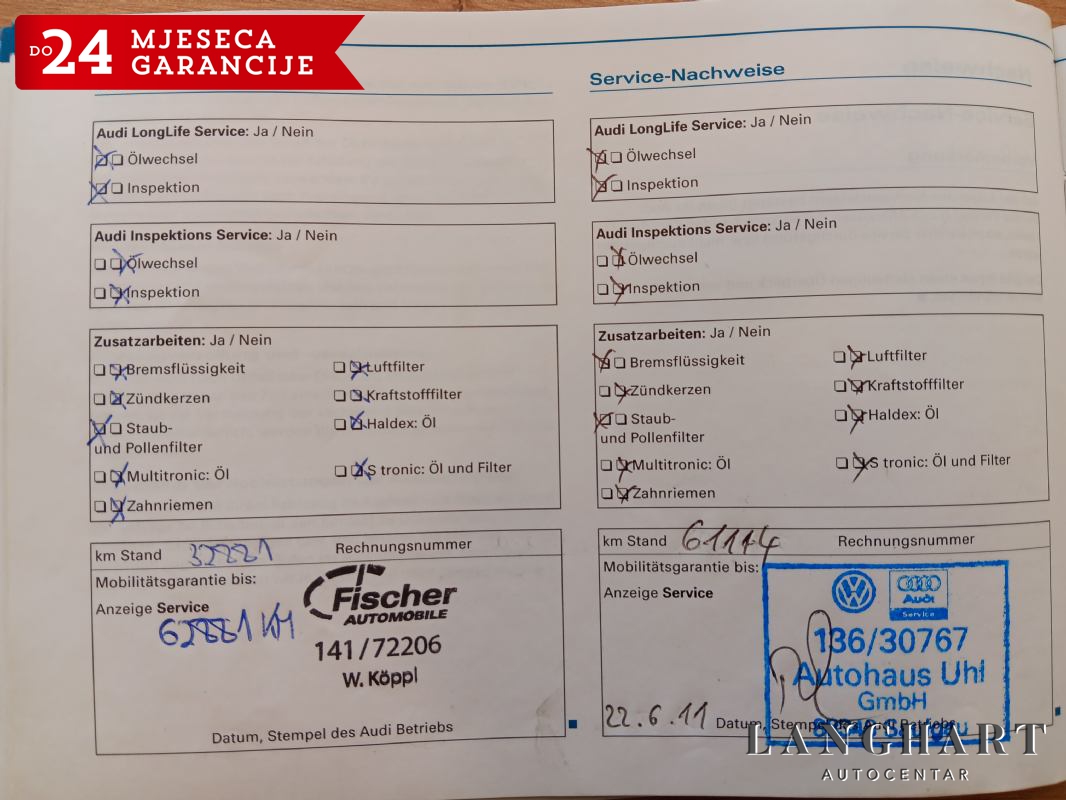 DO 24 MJESECA
GARANCIJE
Audi LongLife Service: Ja / Nein
Ölwechsel
Inspektion
Audi Inspektions Service: Ja / Nein
Ölwechsel
Inspektion
Zusatzarbeiten: Ja / Nein
Bremsflüssigkeit Luftfilter
Zündkerzen Kraftstofffilter
Staub- Haldex: Öl
und Pollenfilter
Multitronic: Öl S tronic: Öl und Filter
Zahnriemen
km Stand 32881 Rechnungsnummer
Mobilitätsgarantie bis:
Anzeige Service
62881 KM
Fischer
AUTOMOBILE
141/72206
W. Köppl
Datum, Stempel des Audi Betriebs
Service-Nachweise
Audi LongLife Service: Ja / Nein
Ölwechsel
Inspektion
Audi Inspektions Service: Ja / Nein
Ölwechsel
Inspektion
Zusatzarbeiten: Ja / Nein
Bremsflüssigkeit Luftfilter
Zündkerzen Kraftstofffilter
Staub- Haldex: Öl
und Pollenfilter
Multitronic: Öl S tronic: Öl und Filter
Zahnriemen
km Stand 61114 Rechnungsnummer
Mobilitätsgarantie bis:
Anzeige Service
Audi
Service
136/30767
Autohaus Uhl
GmbH
22.6.11 Datum, Stempel des Audi Betriebs
LANGHART
AUTOCENTAR